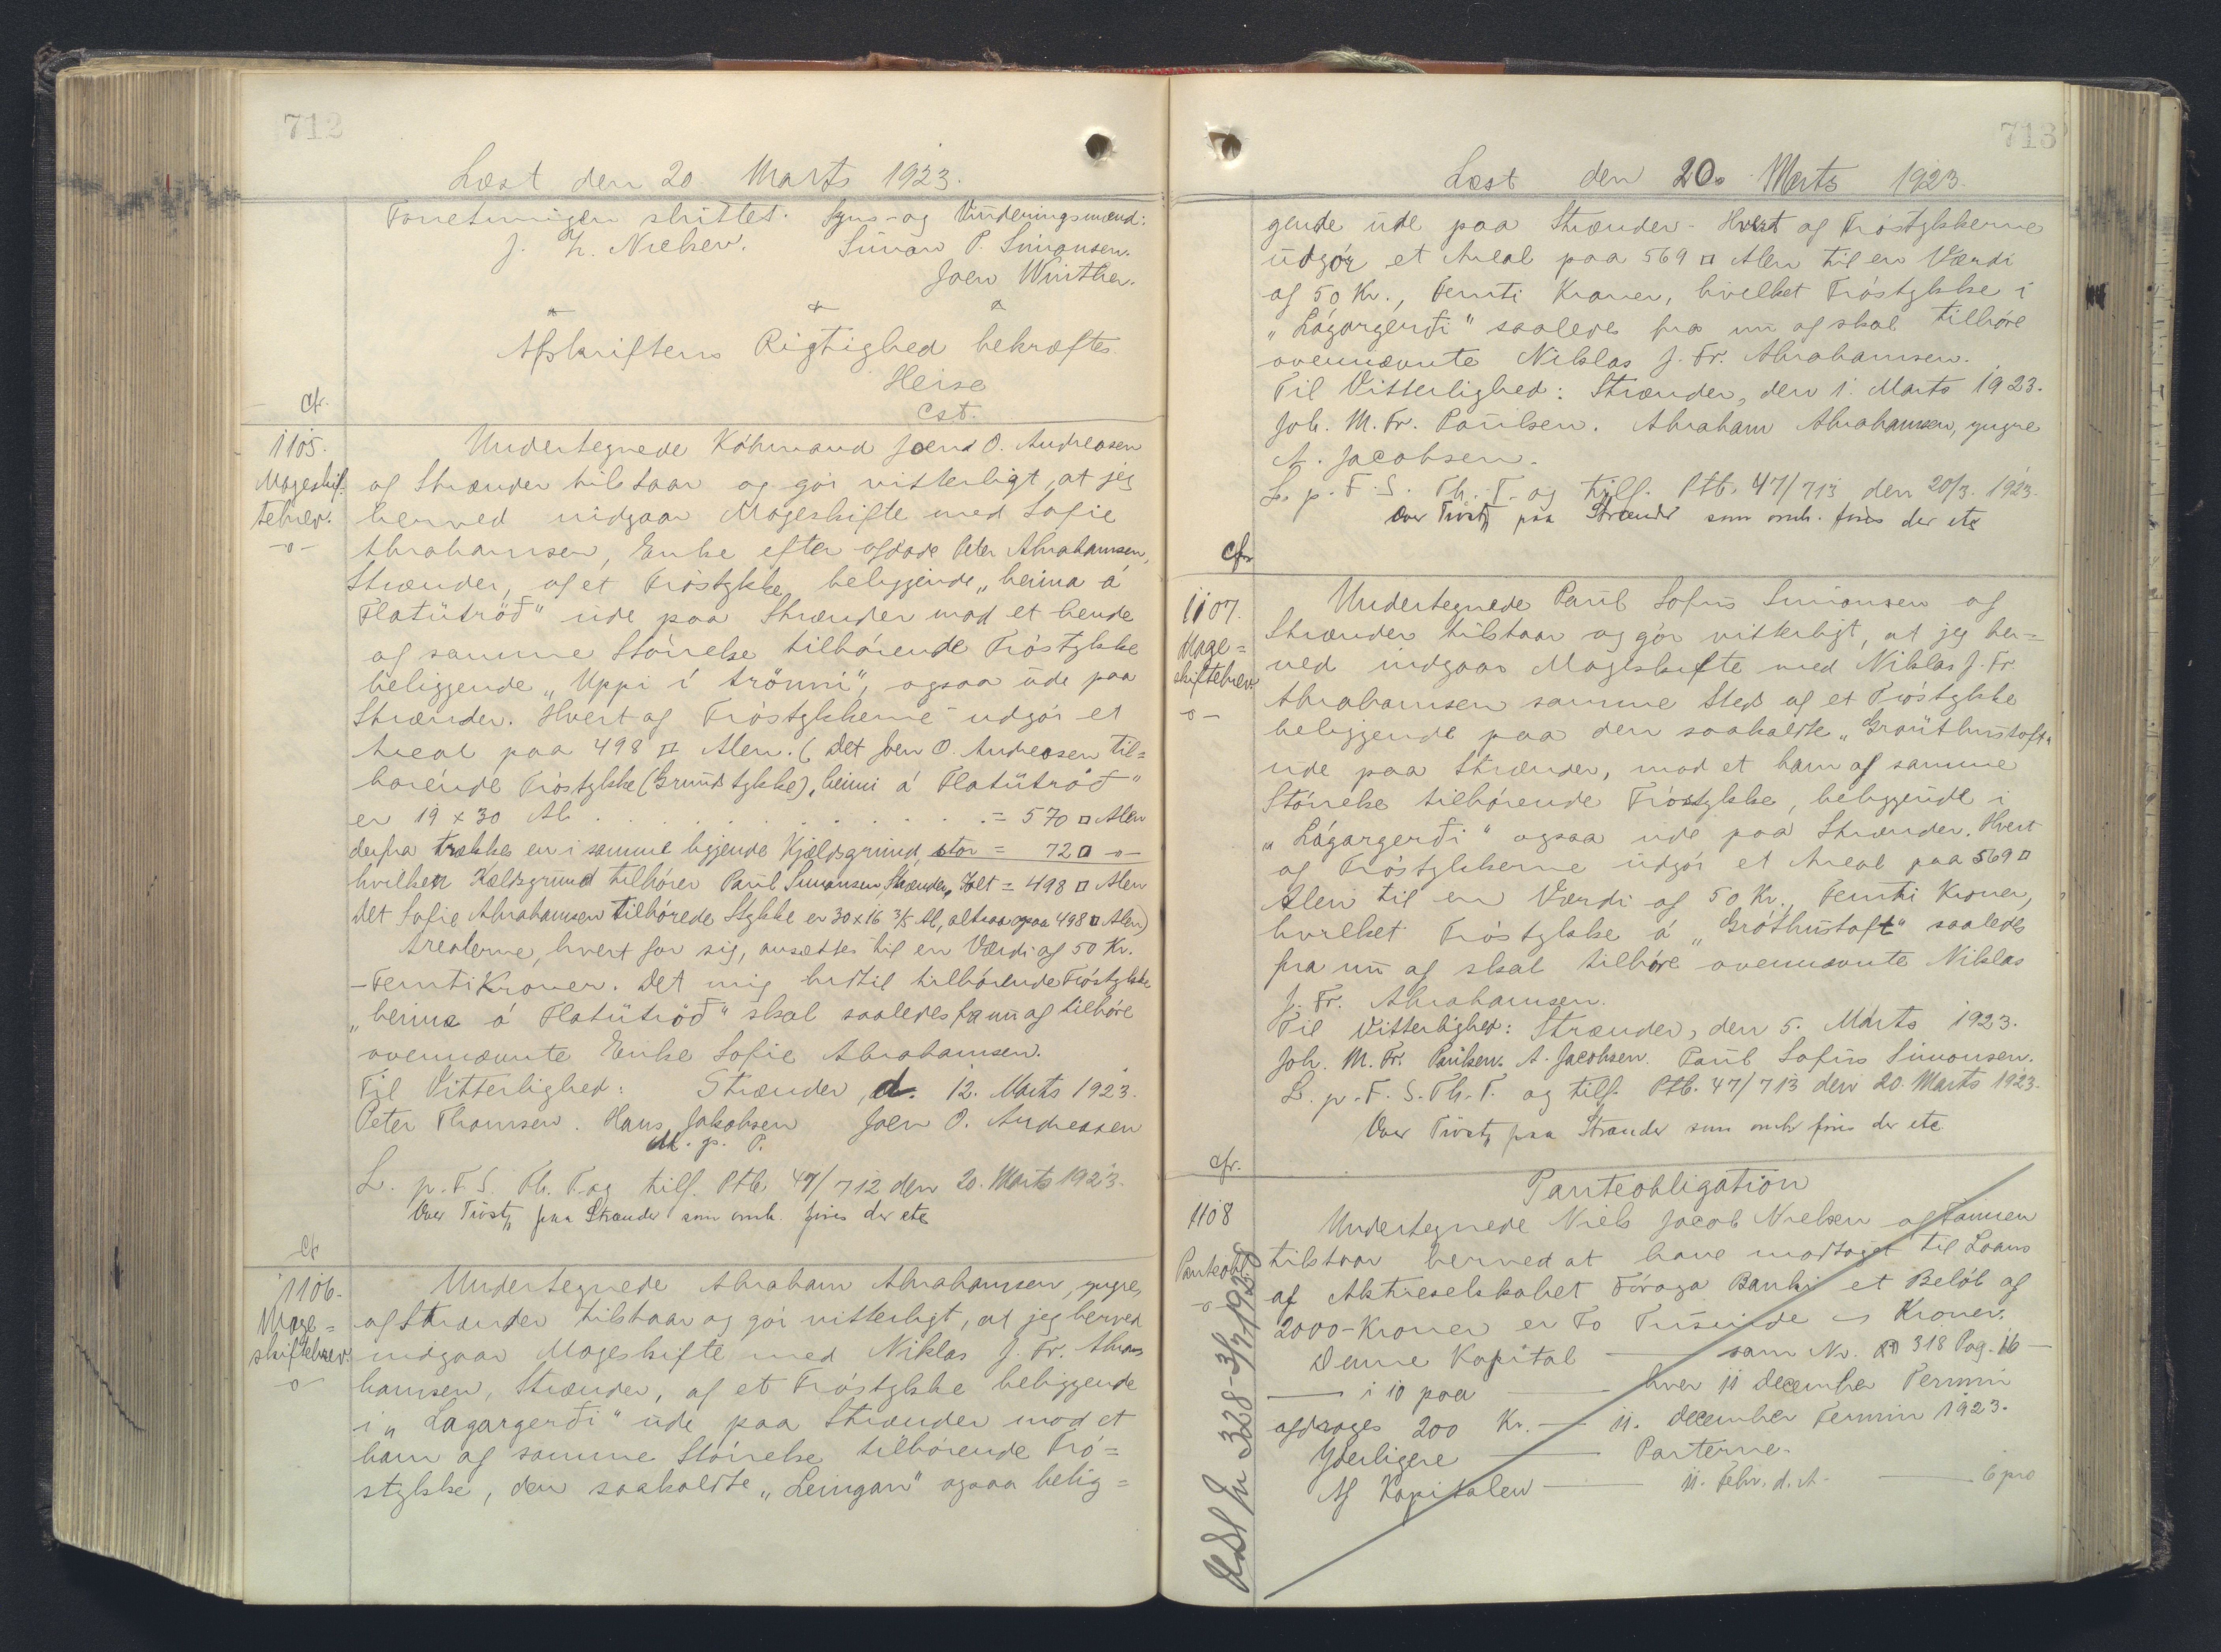 712
Læst den 20. Marts 1923.
Forretningen sluttet. Syns- og Vurderingsmænd:
J. H. Nielsen. Simon P. Simonsen.
Joen Winther.
Afskriftens Rigtighed bekræftes
Heise
Cst.
Cfr.
1105.
Mageskif-
tebrev.
-o-
Undertegnede Köbmand Joen O. Andreasen
af Strænder tilstaar og gör vitterligt, at jeg
herved indgaar Mageskifte med Sofie
Abrahamsen, Enke efter afdøde Peter Abrahamsen,
Strænder, af et Tröstykke beliggende "heima á
Flatütröð" ude paa Strænder mod et hende
af samme Störrelse tilhörende Tröstykke
beliggende "Uppi í trönni", ogsaa ude paa
Strænder. Hvert af Tröstykkerne udgör et
Areal paa 498 □ Alen. (Det Joen O. Andreasen til=
hörende Tröstykke (Grundstykke) "heimi á Flatütröð"
er 19 x 30 Al. . . . . . = 570 □ Alen
derfra trækkes en i samme liggende Kjældsgrund, stor = 72 □ -o-
hvilken Kældsgrund tilhörer Paul Simonsen, Strænder, Holt = 498 □ Alen
det Sofie Abrahamsen tilhörede Stykke er 30x16 3/5 Al, altsaa ogsaa 498 □ Alen)
Arealerne, hvert for sig, ansættes til en Værdi af 50 Kr.
- Femti Kroner. Det mig hidtil tilhörende Tröstykke
"heima á Flatütröð" skal saaledes fra nu af tilhöre
ovennævnte Enke Sofie Abrahamsen.
Til Vitterlighed: Strænder, d. 12. Marts 1923.
Peter Thomsen. Hans Jakobsen Joen O. Andreasen
M. p. P.
L. p. F. S. Th. T. og tilf. Ptb. 47/712 den 20. Marts 1923.
Over Tröst, paa Strænder som omh. fins der etc
Cfr
1106.
Mage=
skiftebrev.
-o-
Undertegnede Abraham Abrahamsen, yngre,
af Strænder tilstaar og gör vitterligt, at jeg herved
indgaar Mageskifte med Niklas J. Fr. Abra
hamsen, Strænder, af et Tröstykke beliggende
i "Lagargerði" ude paa Strænder mod et
ham af samme Störrelse tilhörende Trö=
stykke, den saakaldte "Leingan" ogsaa belig=
713
Læst den 20. Marts 1923.
gende ude paa Strænder. Hvert af Tröstykkerne
udgör et Areal paa 569 □ Alen til en Værdi
af 50 Kr., Femti Kroner, hvilket Tröstykke i
"Lágargerði" saaledes fra nu af skal tilhöre
ovennævnte Niklas J. Fr. Abrahamsen.
Til Vitterlighed: Strænder, den 1. Marts 1923.
Joh. M. Fr. Poulsen. Abraham Abrahamsen, yngre
A. Jacobsen.
L. p. F. S. Th. T. og tilf. Ptb. 47/713 den 20/3. 1923.
Over Tröst, paa Strænder som omh. fins der etc
Cfr
1107.
Mage=
skiftebrev.
-o-
Undertegnede Paul Sofus Simonsen af
Strænder tilstaar og gör vitterligt, at jeg her=
ved indgaar Mageskifte med Niklas J. Fr.
Abrahamsen samme Sted af et Tröstykke
beliggende paa den saakaldte "Grauthustoft"
ude paa Strænder, mod et ham af samme
Störrelse tilhörende Tröstykke, beliggende i
"Lágargerði" ogsaa ude paa Strænder. Hvert
af Tröstykkerne udgör et Areal paa 569 □
Alen til en Værdi af 50 Kr., Femti Kroner,
hvilket Tröstykke á "Gróthustoft" saaledes
fra nu af skal tilhöre ovennævnte Niklas
J. Fr. Abrahamsen.
Til Vitterlighed: Strænder, den 5. Marts 1923.
Joh. M. Fr. Poulsen. A. Jacobsen. Paul Sofus Simonsen.
L. p. F. S. Th. T. og tilf. Ptb. 47/713 den 20. Marts 1923.
Over Tröst, paa Strænder som omh. fins der etc
Cfr.
1108
Panteobl
-o-
Panteobligation
Undertegnede Niels Jacob Nielsen af Famien
tilstaar herved at have modtaget til Laans
af Aktieselskabet Föroya Banki et Belöb af
2000 - Kroner er To Tusinde Kroner.
Denne Kapital — som Nr. 318 Pag. 16 —
— i 10 paa — hver 11 december Termin
afdrages 200 Kr. — 11. december Termin 1923.
Yderligere — Parterne.
Af Kapitalen — 11. Febr. d. A. — 6 pro
328-3/7-1928